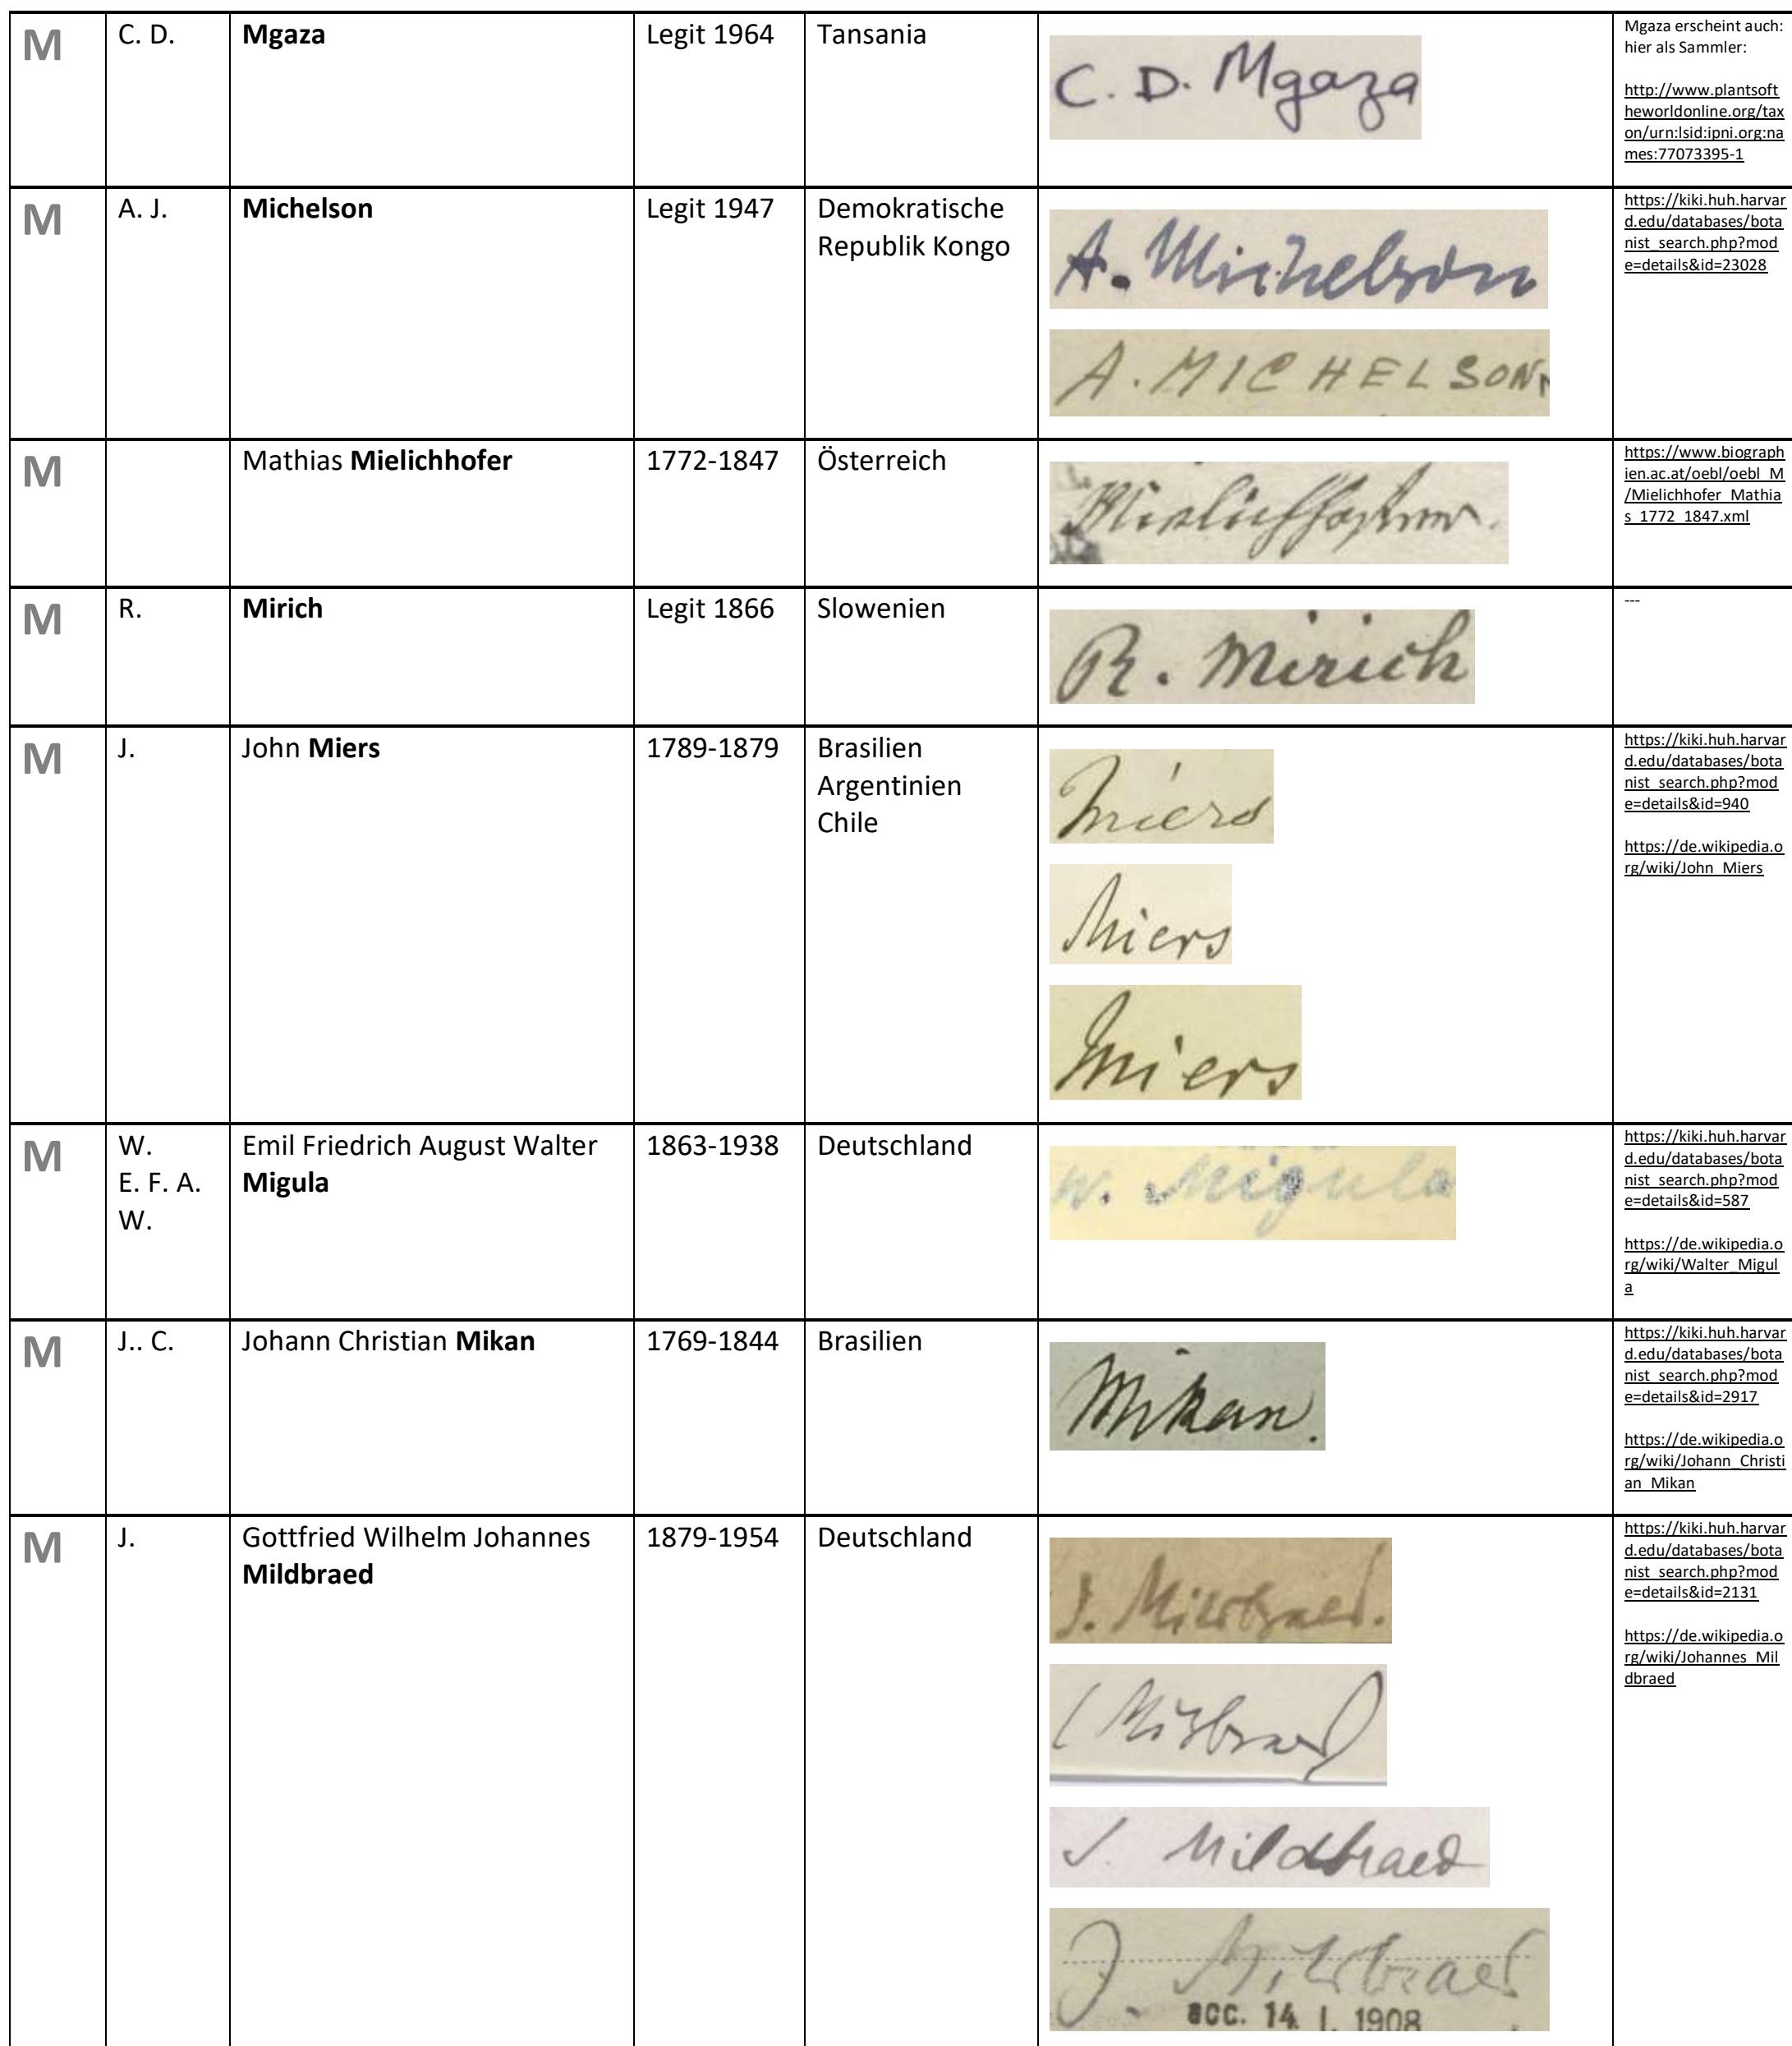 M
C. D.
Mgaza
Legit 1964
Tansania
C. D. Mgaza
Mgaza erscheint auch:
hier als Sammler:
http://www.plantsoft
heworldonline.org/tax
on/urn:lsid:ipni.org:na
mes:77073395-1
M
A. J.
Michelson
Legit 1947
Demokratische
Republik Kongo
A. Michelson
A. MICHELSON
https://kiki.huh.harvar
d.edu/databases/bota
nist_search.php?mod
e=details&id=23028
M
Mathias Mielichhofer
1772-1847
Österreich
Mielichhofer.
https://www.biograph
ien.ac.at/oebl/oebl_M
/Mielichhofer_Mathia
s_1772_1847.xml
M
R.
Mirich
Legit 1866
Slowenien
R. Mirich
---
M
J.
John Miers
1789-1879
Brasilien
Argentinien
Chile
Miers
Miers
Miers
https://kiki.huh.harvar
d.edu/databases/bota
nist_search.php?mod
e=details&id=940
https://de.wikipedia.o
rg/wiki/John_Miers
M
W.
E. F. A.
W.
Emil Friedrich August Walter
Migula
1863-1938
Deutschland
W. Migula
https://kiki.huh.harvar
d.edu/databases/bota
nist_search.php?mod
e=details&id=587
https://de.wikipedia.o
rg/wiki/Walter_Migul
a
M
J.. C.
Johann Christian Mikan
1769-1844
Brasilien
Mikan.
https://kiki.huh.harvar
d.edu/databases/bota
nist_search.php?mod
e=details&id=2917
https://de.wikipedia.o
rg/wiki/Johann_Christi
an_Mikan
M
J.
Gottfried Wilhelm Johannes
Mildbraed
1879-1954
Deutschland
J. Mildbraed.
(Mildbraed)
J. Mildbraed
J. Mildbraed
acc. 14. I. 1908
https://kiki.huh.harvar
d.edu/databases/bota
nist_search.php?mod
e=details&id=2131
https://de.wikipedia.o
rg/wiki/Johannes_Mil
dbraed